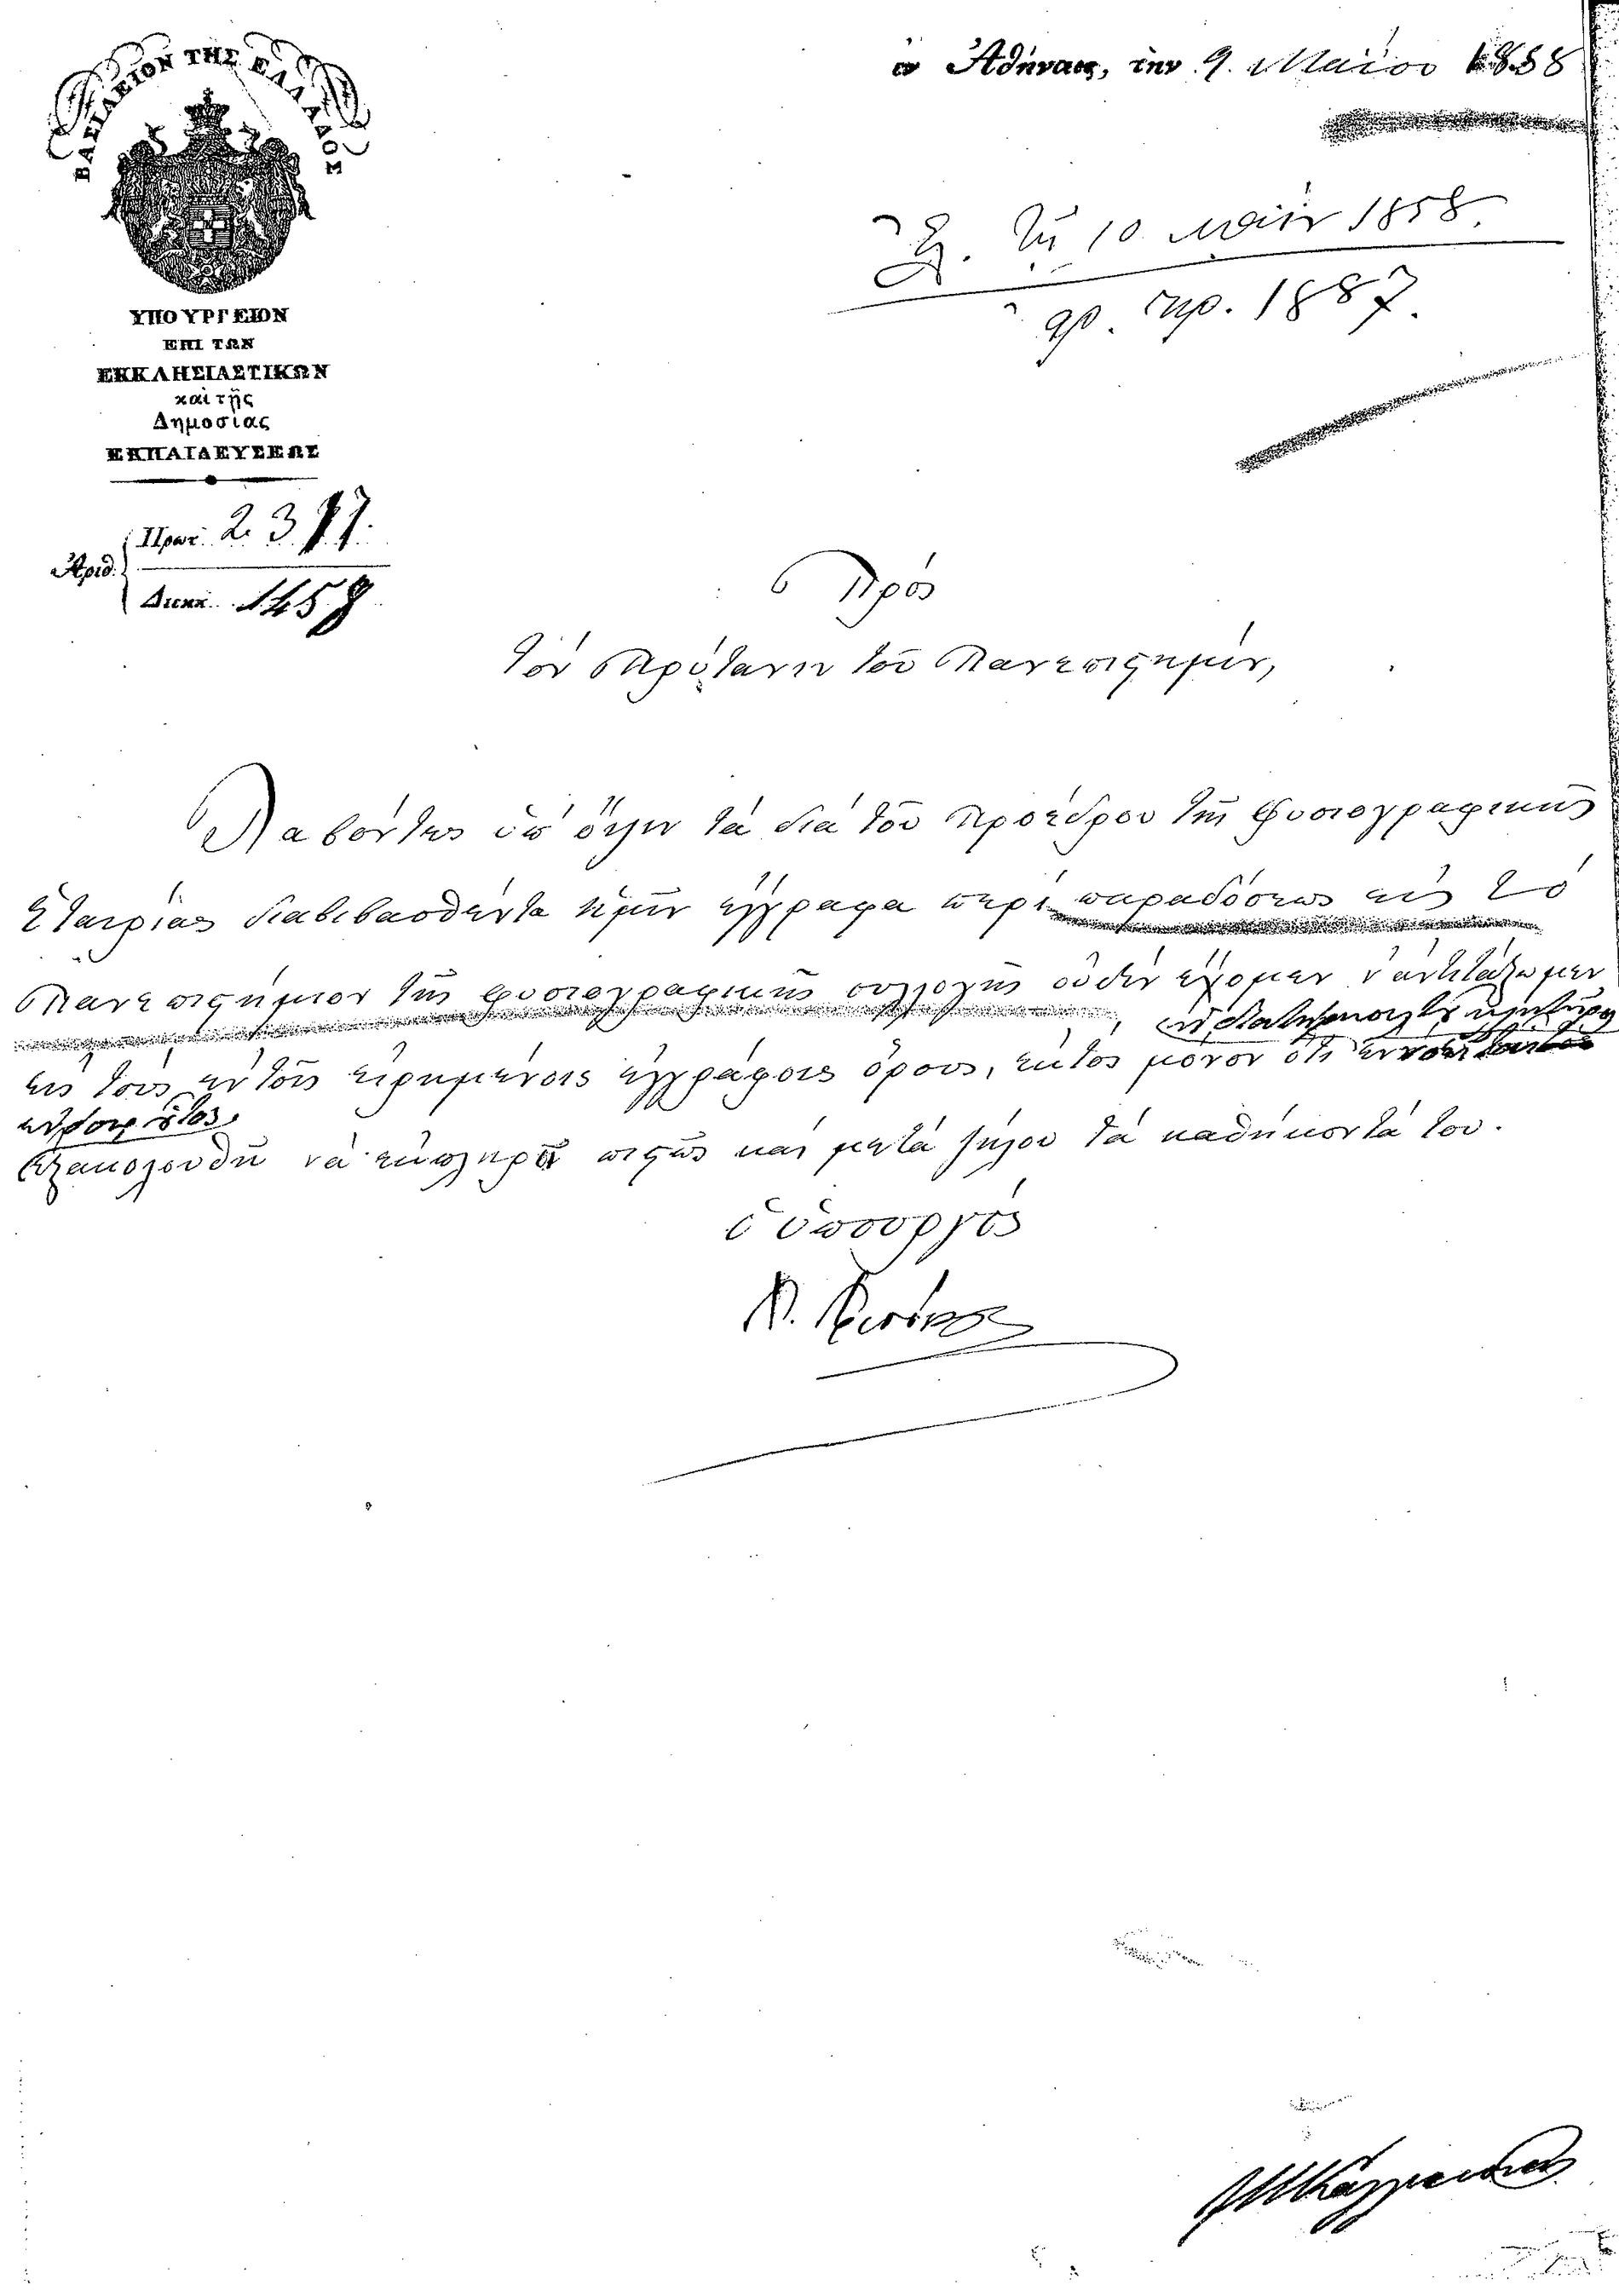 ΒΑΣΙΛΕΙΟΝ ΤΗΣ ΕΛΛΑΔΟΣ
ΥΠΟΥΡΓΕΙΟΝ
ΕΠΙ ΤΩΝ
ΕΚΚΛΗΣΙΑΣΤΙΚΩΝ
καὶ τῆς
Δημοσίας
ΕΚΠΑΙΔΕΥΣΕΩΣ
Ἀριθ.
Πρωτ. 23
Διεκπ.
ἐν Ἀθήναις, τὴν 9. Μαΐου 1858
τῇ 10 Μαΐου 1858.
ἀρ. πρ. 1887.
Πρὸς
τὸν Πρύτανιν τοῦ Πανεπιστημίου,
Λαβόντες ὑπ' ὄψιν τὰ διὰ τοῦ Προέδρου τῆς Φυσιογραφικῆς
Ἑταιρίας διαβιβασθέντα ἡμῖν ἔγγραφα περὶ παραδόσεως εἰς τὸ
Πανεπιστήμιον τῆς φυσιογραφικῆς συλλογῆς οὐδὲν ἔχομεν ν' ἀντιτάξωμεν
εἰς τοὺς ἐν τοῖς εἰρημένοις ἐγγράφοις ὅρους, ἐκτὸς μόνον ὅτι
ἐξακολουθῇ νὰ ἐκπληροῖ πιστῶς καὶ μετὰ ζήλου τὰ καθήκοντά του.
ὁ Ὑπουργὸς